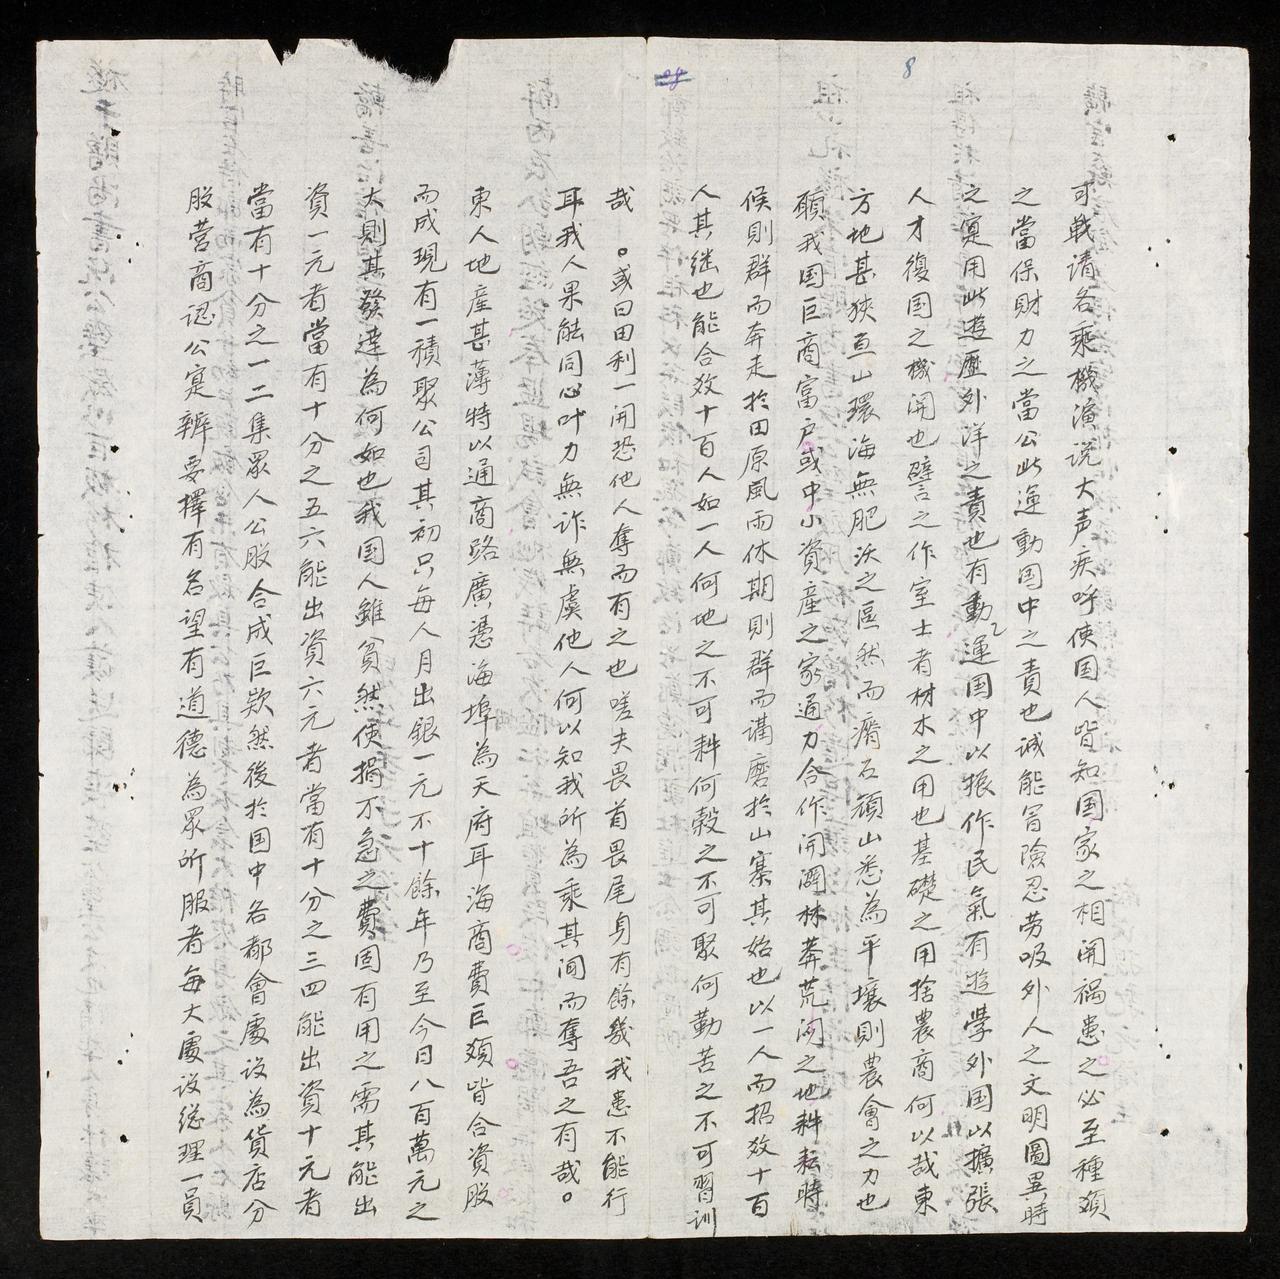 8
可戰请各乘機演説大声疾呼使国人皆知国家之相開禍患之必至種類
之當保財力之當公此運動国中之責也诚能冒險忍劳吸外人之文明圖異時
之寔用此遊歷外洋之責也有動運国中以振作民氣有遊學外国以擴張
人才復国之機開也譬之作室士者材木之用也基礎之用捨農商何以哉東
方地甚狹亘山環海無肥沃之區然而瘠石頑山悉為平壤則農會之力也
願我国巨商富户或中小資産之家通力合作開闢林莽荒闲之地耕耘時
候則群而奔走於田原風雨休期則群而講磨於山寨其始也以一人而招效十百
人其继也能合效十百人如一人何地之不可耕何穀之不可聚何勤苦之不可習训
哉 。或曰田利一開恐他人奪而有之也嗟夫畏首畏尾身有餘幾我患不能行
耳我人果能同心叶力無诈無虞他人何以知我所為乘其间而奪吾之有哉。
東人地産甚薄特以通商路廣憑海埠為天府耳海商費巨頦皆合資股
而成現有一積聚公司其初只每人月出銀一元不十餘年乃至今日八百萬元之
大則其發達為何如也我国人雖貧然使捐不急之費固有用之需其能出
資一元者當有十分之五六能出資六元者當有十分之三四能出資十元者
當有十分之一二集眾人公股合成巨欵然後於国中名都會處设為貨店分
股营商認公寔辨要擇有名望有道德為眾所服者每大處设総理一員